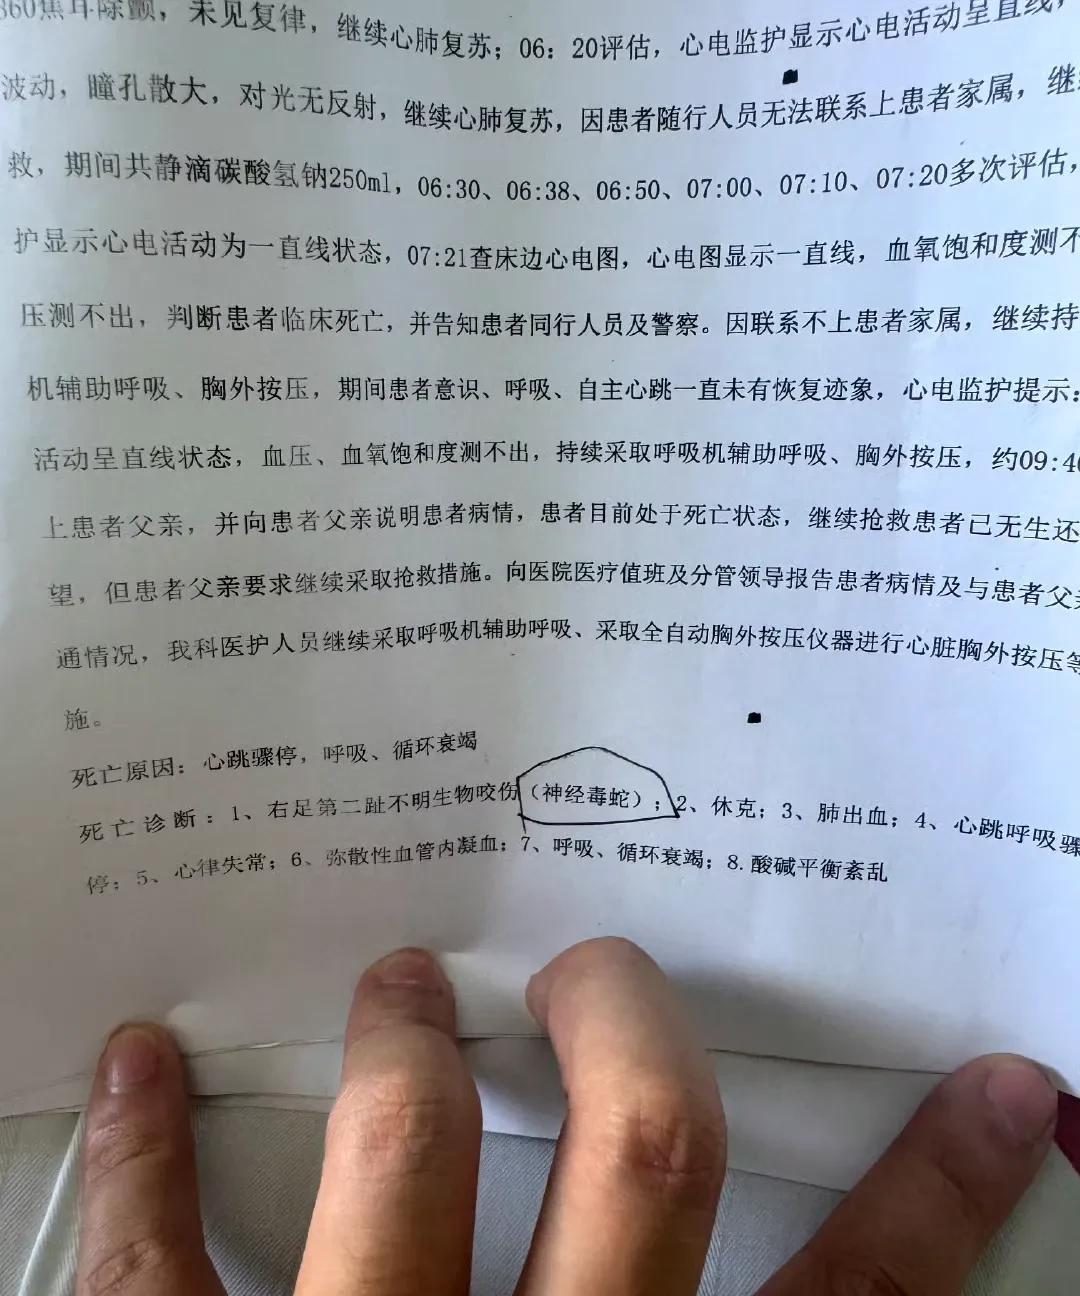 360焦耳除颤，未见复律，继续心肺复苏；06：20评估，心电监护显示心电活动呈直线，
波动，瞳孔散大，对光无反射，继续心肺复苏，因患者随行人员无法联系上患者家属，继
救，期间共静滴碳酸氢钠250ml，06:30、06:38、06:50、07:00、07:10、07:20多次评估，
护显示心电活动为一直线状态，07:21查床边心电图，心电图显示一直线，血氧饱和度测不
压测不出，判断患者临床死亡，并告知患者同行人员及警察。因联系不上患者家属，继续持
机辅助呼吸、胸外按压，期间患者意识、呼吸、自主心跳一直未有恢复迹象，心电监护提示：
活动呈直线状态，血压、血氧饱和度测不出，持续采取呼吸机辅助呼吸、胸外按压，约09:40
上患者父亲，并向患者父亲说明患者病情，患者目前处于死亡状态，继续抢救患者已无生还
望，但患者父亲要求继续采取抢救措施。向医院医疗值班及分管领导报告患者病情及与患者父亲
通情况，我科医护人员继续采取呼吸机辅助呼吸、采取全自动胸外按压仪器进行心脏胸外按压等
施。
死亡原因：心跳骤停，呼吸、循环衰竭
死亡诊断：1、右足第二趾不明生物咬伤（神经毒蛇）；2、休克；3、肺出血；4、心跳呼吸骤
停；5、心律失常；6、弥散性血管内凝血；7、呼吸、循环衰竭；8.酸碱平衡紊乱